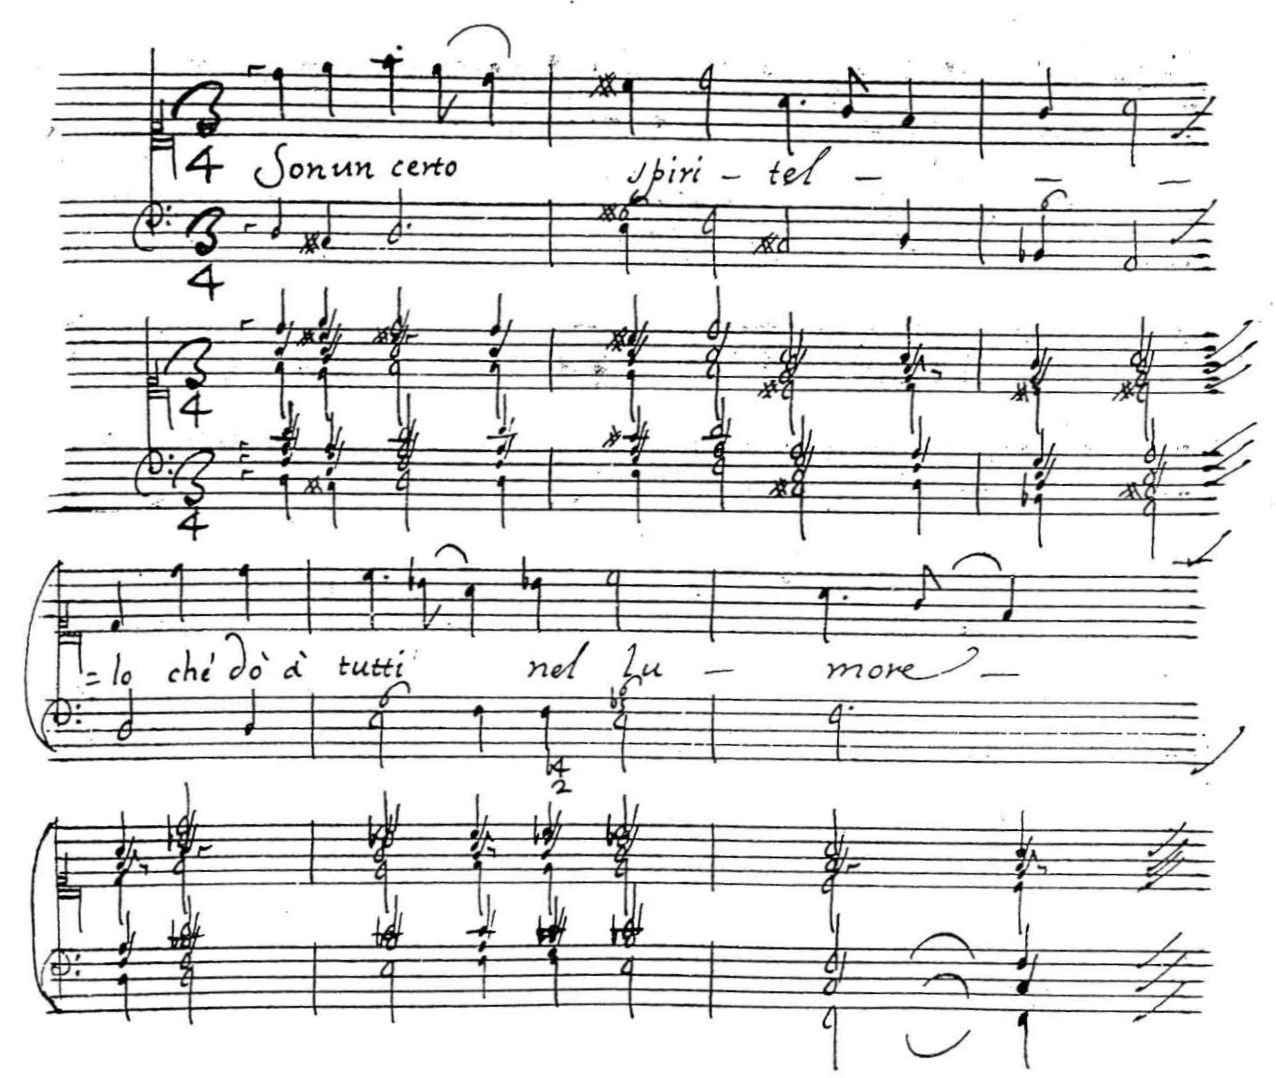 3
4
Son un certo spiri - tel - - -
3
4
3
4
3
4
= lo ché dò à tutti nel Lu - more -
4
2